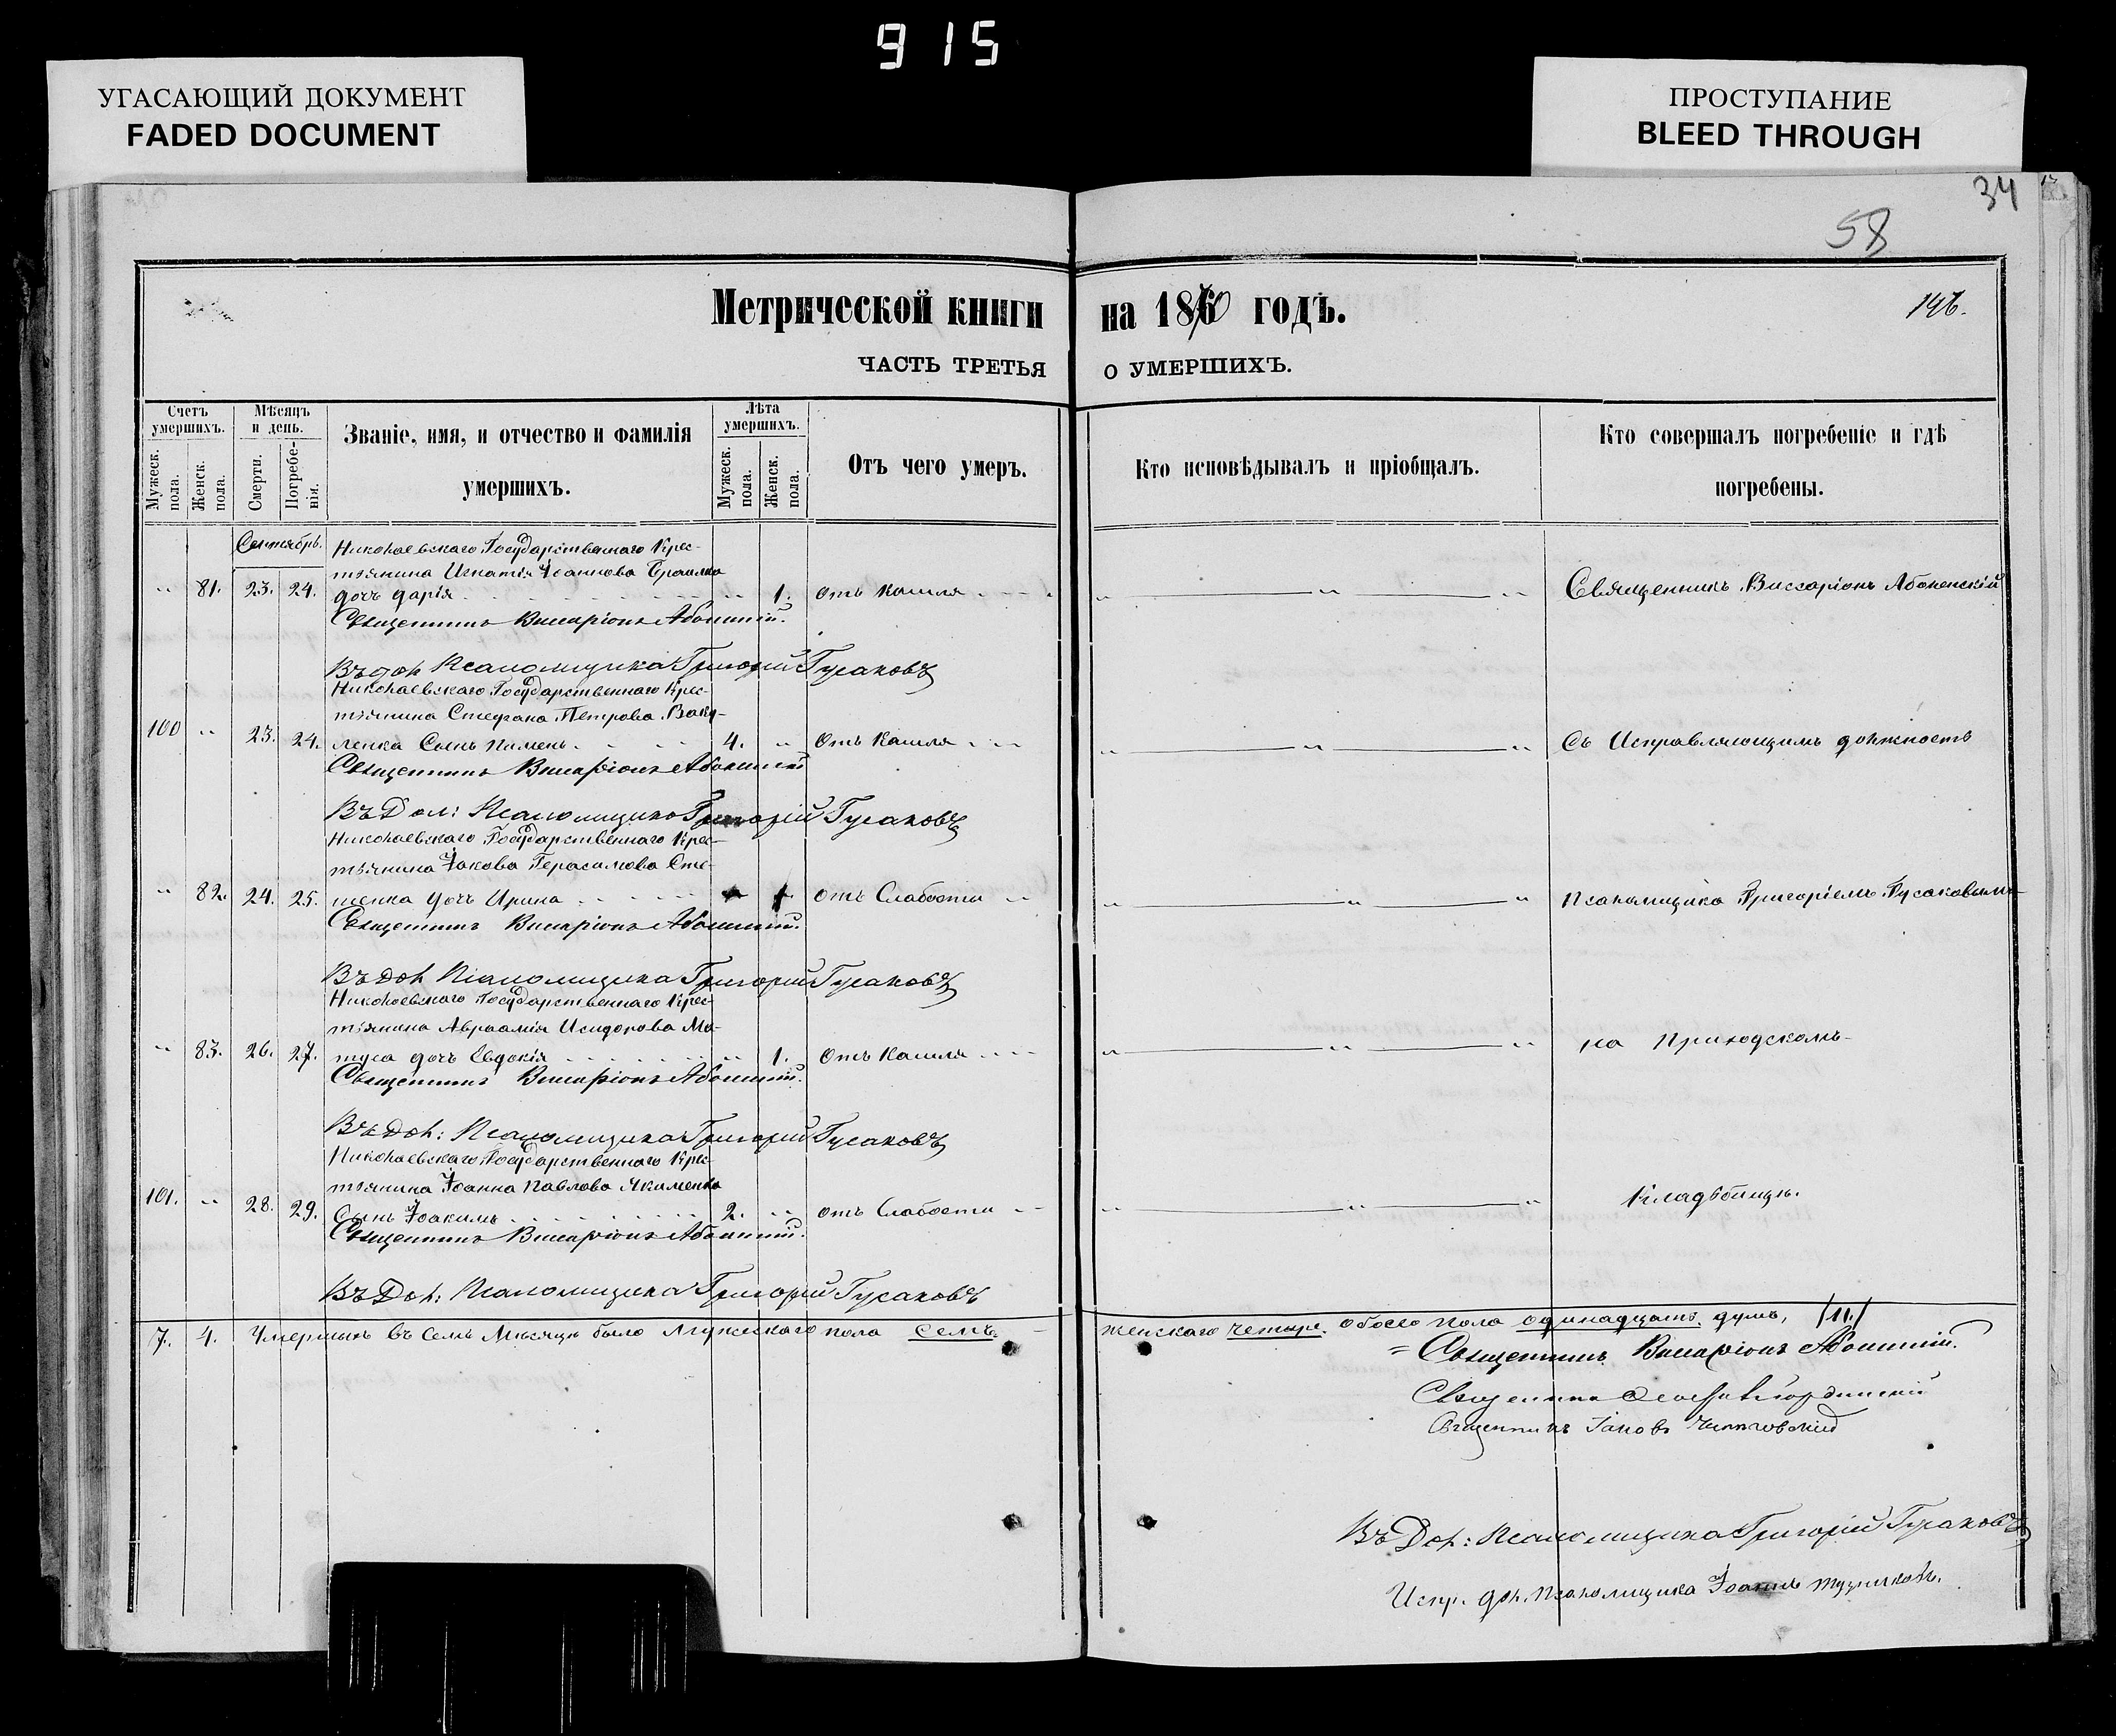 915
УГАСАЮЩИЙ ДОКУМЕНТ
FADED DOCUMENT
ПРОСТУПАНИЕ
BLEED THROUGH
34
58
Метрической книги на 1870 годъ.
146.
ЧАСТЬ ТРЕТЬЯ О УМЕРШИХЪ.
Счетъ умершихъ.
Мужеск. пола.
Женск. пола.
Мѣсяцъ и день.
Смерти.
Погребенія.
Званіе, имя, и отчество и фамилія
умершихъ.
Лѣта умершихъ.
Мужеск. пола.
Женск. пола.
Отъ чего умеръ.
Кто исповѣдывалъ и пріобщалъ.
Кто совершалъ погребеніе и гдѣ
погребены.
Сентябрь.
Николаевскаго Государственнаго Крес-
тьянина Игнатія Іоаннова
81. 23. 24. дочь Дарія 1. отъ Кашля Священникъ Виссаріонъ Абоненскій
Священникъ Виссаріонъ Абоненскій.
Въ дол Псаломщика Григорій Гусаковъ
Николаевскаго Государственнаго Крес-
тьянина Стефана Петрова Ваку-
100 23. 24. ленка Сынъ Пименъ 4. Отъ Кашля Съ Исправляющимъ должность
Священникъ Виссаріонъ Абоненскій
Въ Дол: Псаломщика Григорій Гусаковъ
Николаевскаго Государственнаго Крес-
тьянина Іакова Герасимова Сте-
82. 24. 25. дочь Ирина отъ Слабости Псаломщика Григоріемъ Гусаковымъ
Священникъ Виссаріонъ Абоненскій.
Въ дол Псаломщика Григорій Гусаковъ
Николаевскаго Государственнаго Крес-
тьянина Авраамія Исидорова Ма-
83. 26. 27. туса дочь Евдокія 1. Отъ Кашля на Приходскомъ
Священникъ Виссаріонъ Абоненскій.
Въ Дол: Псаломщика Григорій Гусаковъ
Николаевскаго Государственнаго Крес-
тьянина Іоанна Павлова Якименка
101. 28. 29. Сынъ Іоакимъ 2. отъ Слабости Кладбищѣ.
Священникъ Виссаріонъ Абоненскій.
Въ Дол: Псаломщика Григорій Гусаковъ
7. 4. Умершихъ въ семъ Мѣсяцѣ было Мужескаго пола Семь женскаго четыре. Обоего пола одинадцать душъ, /11./
Священникъ Виссаріонъ Абоненскій.
Священникъ
Священникъ Іаковъ
Въ Дол: Псаломщика Григорій Гусаковъ
Испр. дол. Псаломщика Іоаннъ